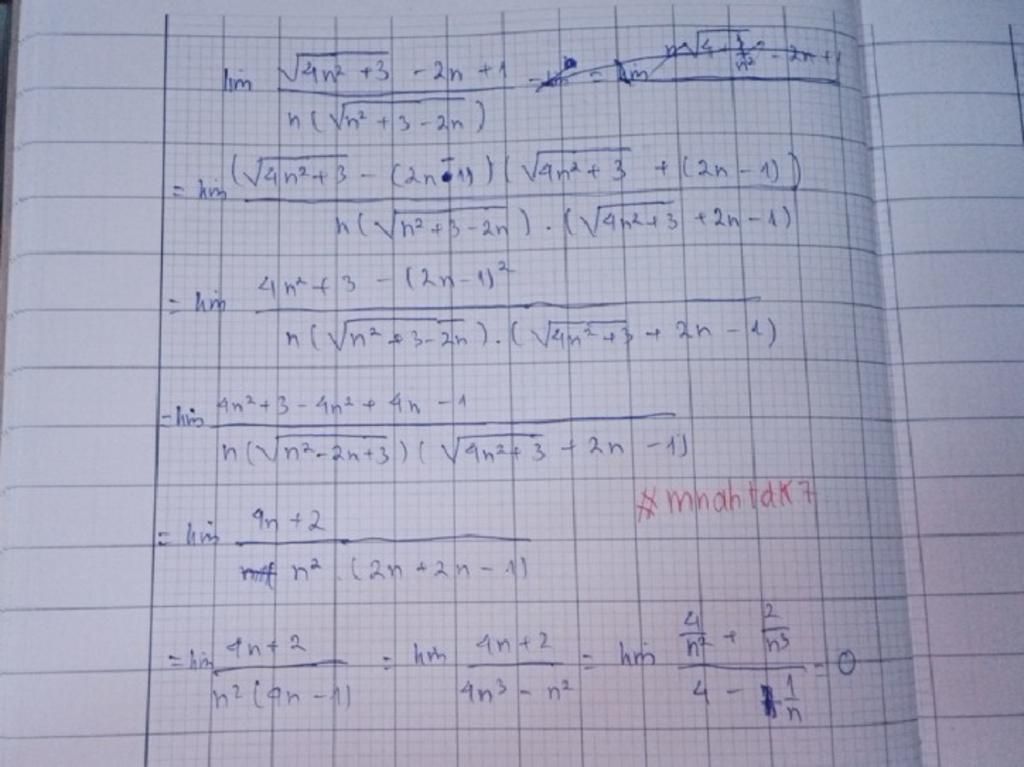 lim (√(4n² + 3) - 2n + 1) / (n(√(n² + 3 - 2n)))
= lim ((√(4n² + 3) - (2n - 1))(√(4n² + 3) + (2n - 1))) / (n(√(n² + 3 - 2n)) . (√(4n² + 3) + 2n - 1))
= lim (4n² + 3 - (2n - 1)²) / (n(√(n² + 3 - 2n)) . (√(4n² + 3) + 2n - 1))
= lim (4n² + 3 - 4n² + 4n - 1) / (n(√(n² - 2n + 3))(√(4n² + 3) + 2n - 1))
#mnahtdk7
= lim (4n + 2) / (n² . (2n + 2n - 1))
= lim (4n + 2) / (n²(4n - 1)) = lim (4n + 2) / (4n³ - n²) = lim (4/n² + 2/n³) / (4 - 1/n) = 0